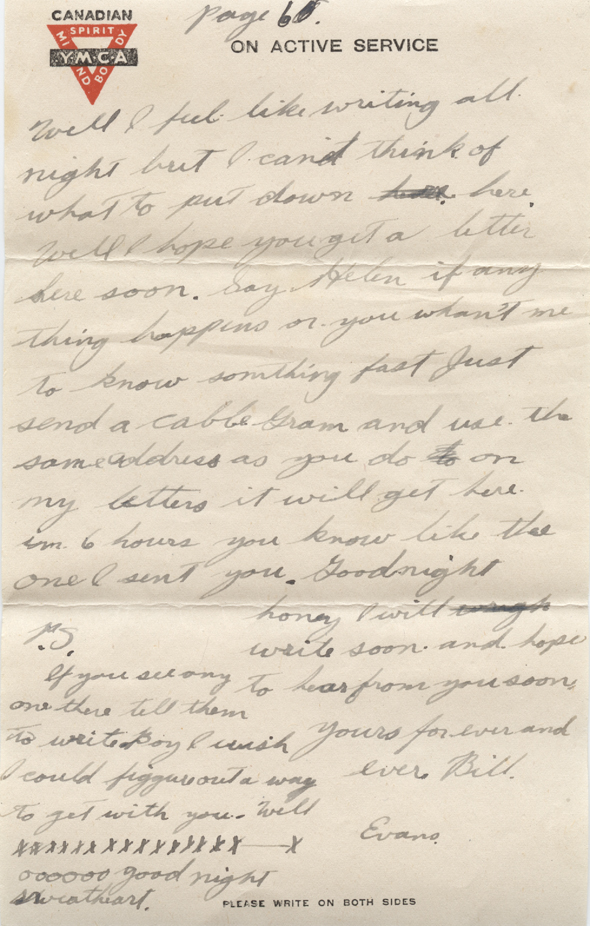 CANADIAN
SPIRIT
MIND
BODY
Y.M.C.A
Page 6.
ON ACTIVE SERVICE
Well I feel like writing all
night but I can't think of
what to put down here.
Well I hope you get a letter
here soon. Say Helen if any
thing happens or you whan't me
to know somthing fast Just
send a cable Gram and use the
same address as you do on
my letters it will get here
in 6 hours you know like the
one I sent you. Goodnight
honey I will
write soon and hope
to hear from you soon,
Yours forever and
ever Bill.
Evans.
P.S.
If you see any
one there tell them
to write Boy I wish
I could figgure out a way
to get with you. Well
xxxxxxxxxxxxxxxx—x
oooooo good night
sweatheart.
PLEASE WRITE ON BOTH SIDES